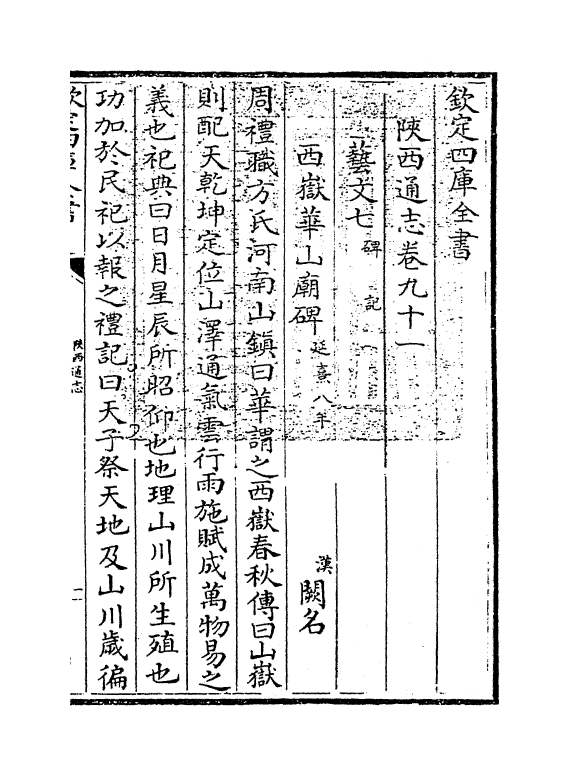 欽定四庫全書
陝西通志卷九十一
藝文七 碑 記
西嶽華山廟碑 延熹八年 漢 闕名
周禮職方氏河南山鎮曰華謂之西嶽春秋傳曰山嶽
則配天乾坤定位山澤通氣雲行雨施賦成萬物易之
義也祀典曰日月星辰所昭仰也地理山川所生殖也
功加於民祀以報之禮記曰天子祭天地及山川歲徧
欽定四庫全書
陝西通志
一